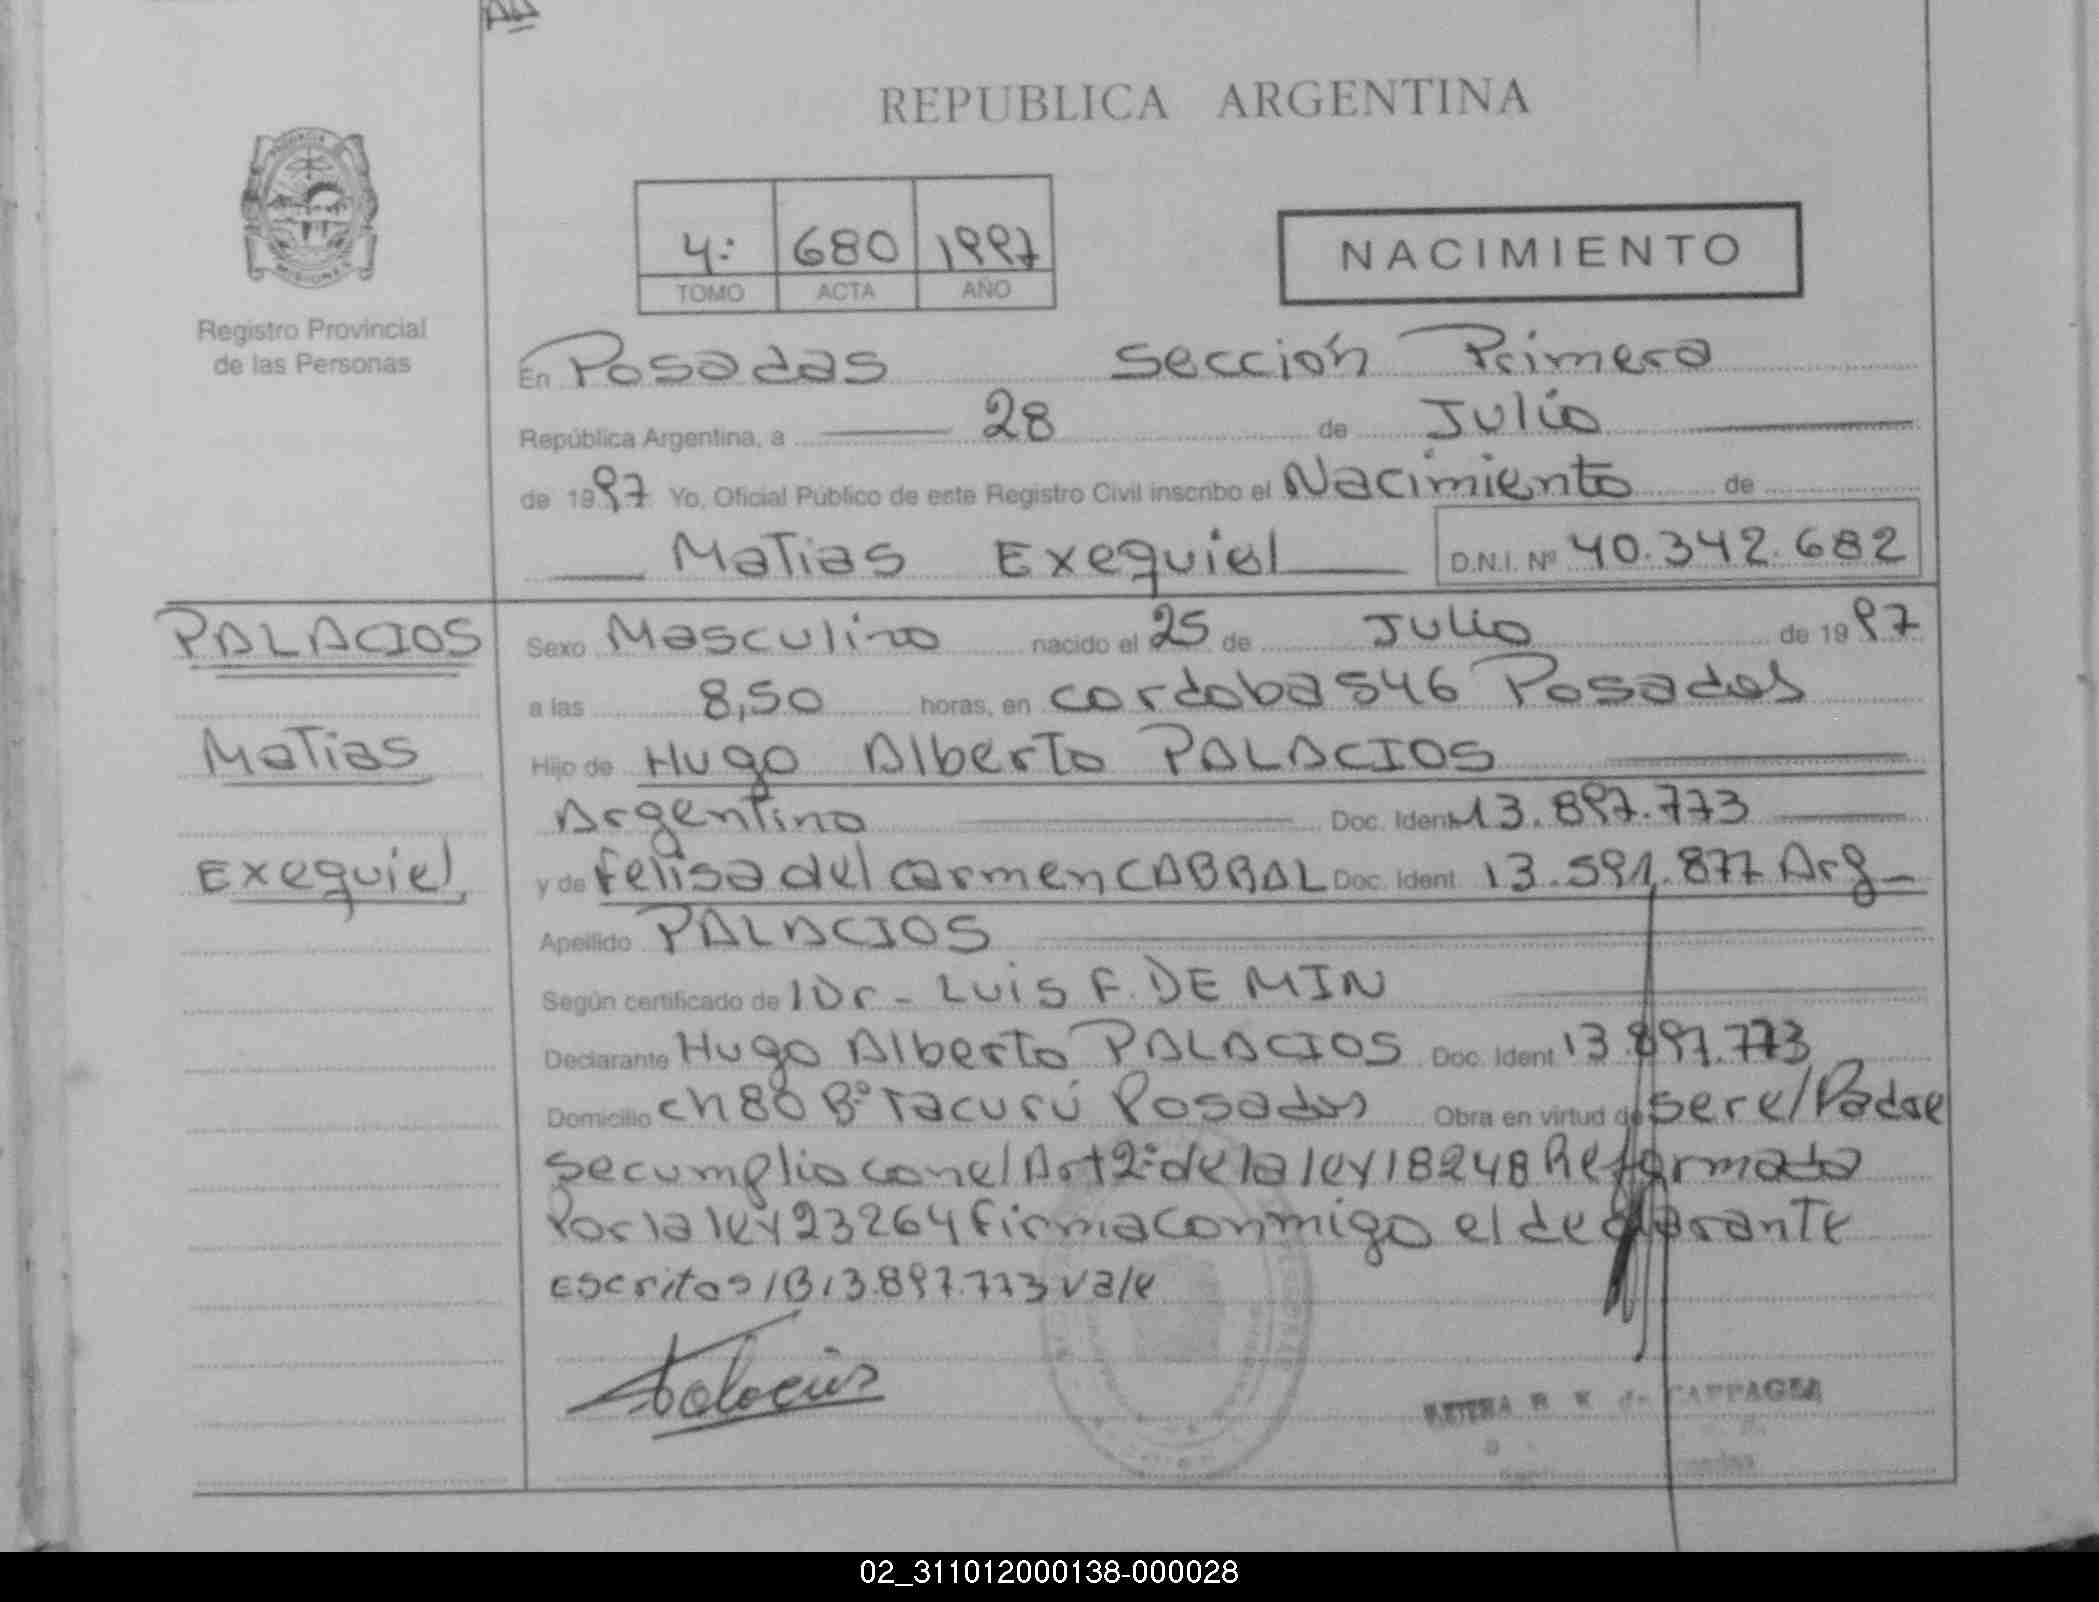 REPUBLICA ARGENTINA
4: 680 1997
TOMO ACTA AÑO
NACIMIENTO
Registro Provincial
de las Personas
En Posadas Sección Primera
República Argentina, a 28 de Julio
de 1997 Yo, Oficial Público de este Registro Civil inscribo el Nacimiento de
Matias Exequiel D.N.I. Nº 40.342.682
PALACIOS
Matias
Exequiel
Sexo Masculino nacido el 25 de Julio de 1997
a las 8,50 horas, en cordoba 546 Posadas
Hijo de Hugo Alberto PALACIOS
Argentino Doc. Ident. 13.897.773
y de Felisa del Carmen CABRAL Doc. Ident. 13.591.877 Arg
Apellido PALACIOS
Según certificado de Dr- LUIS F. DE MIN
Declarante Hugo Alberto PALACIOS Doc. Ident. 13.897.773
Domicilio ch 80 Bº Tacurú Posadas Obra en virtud de ser e/ Padre
se cumplio con el Art 2º de la ley 18248 Reformada
Por la ley 23264 firma conmigo el declarante
Escritos 13.897.773 vale
Palacios
02_311012000138-000028